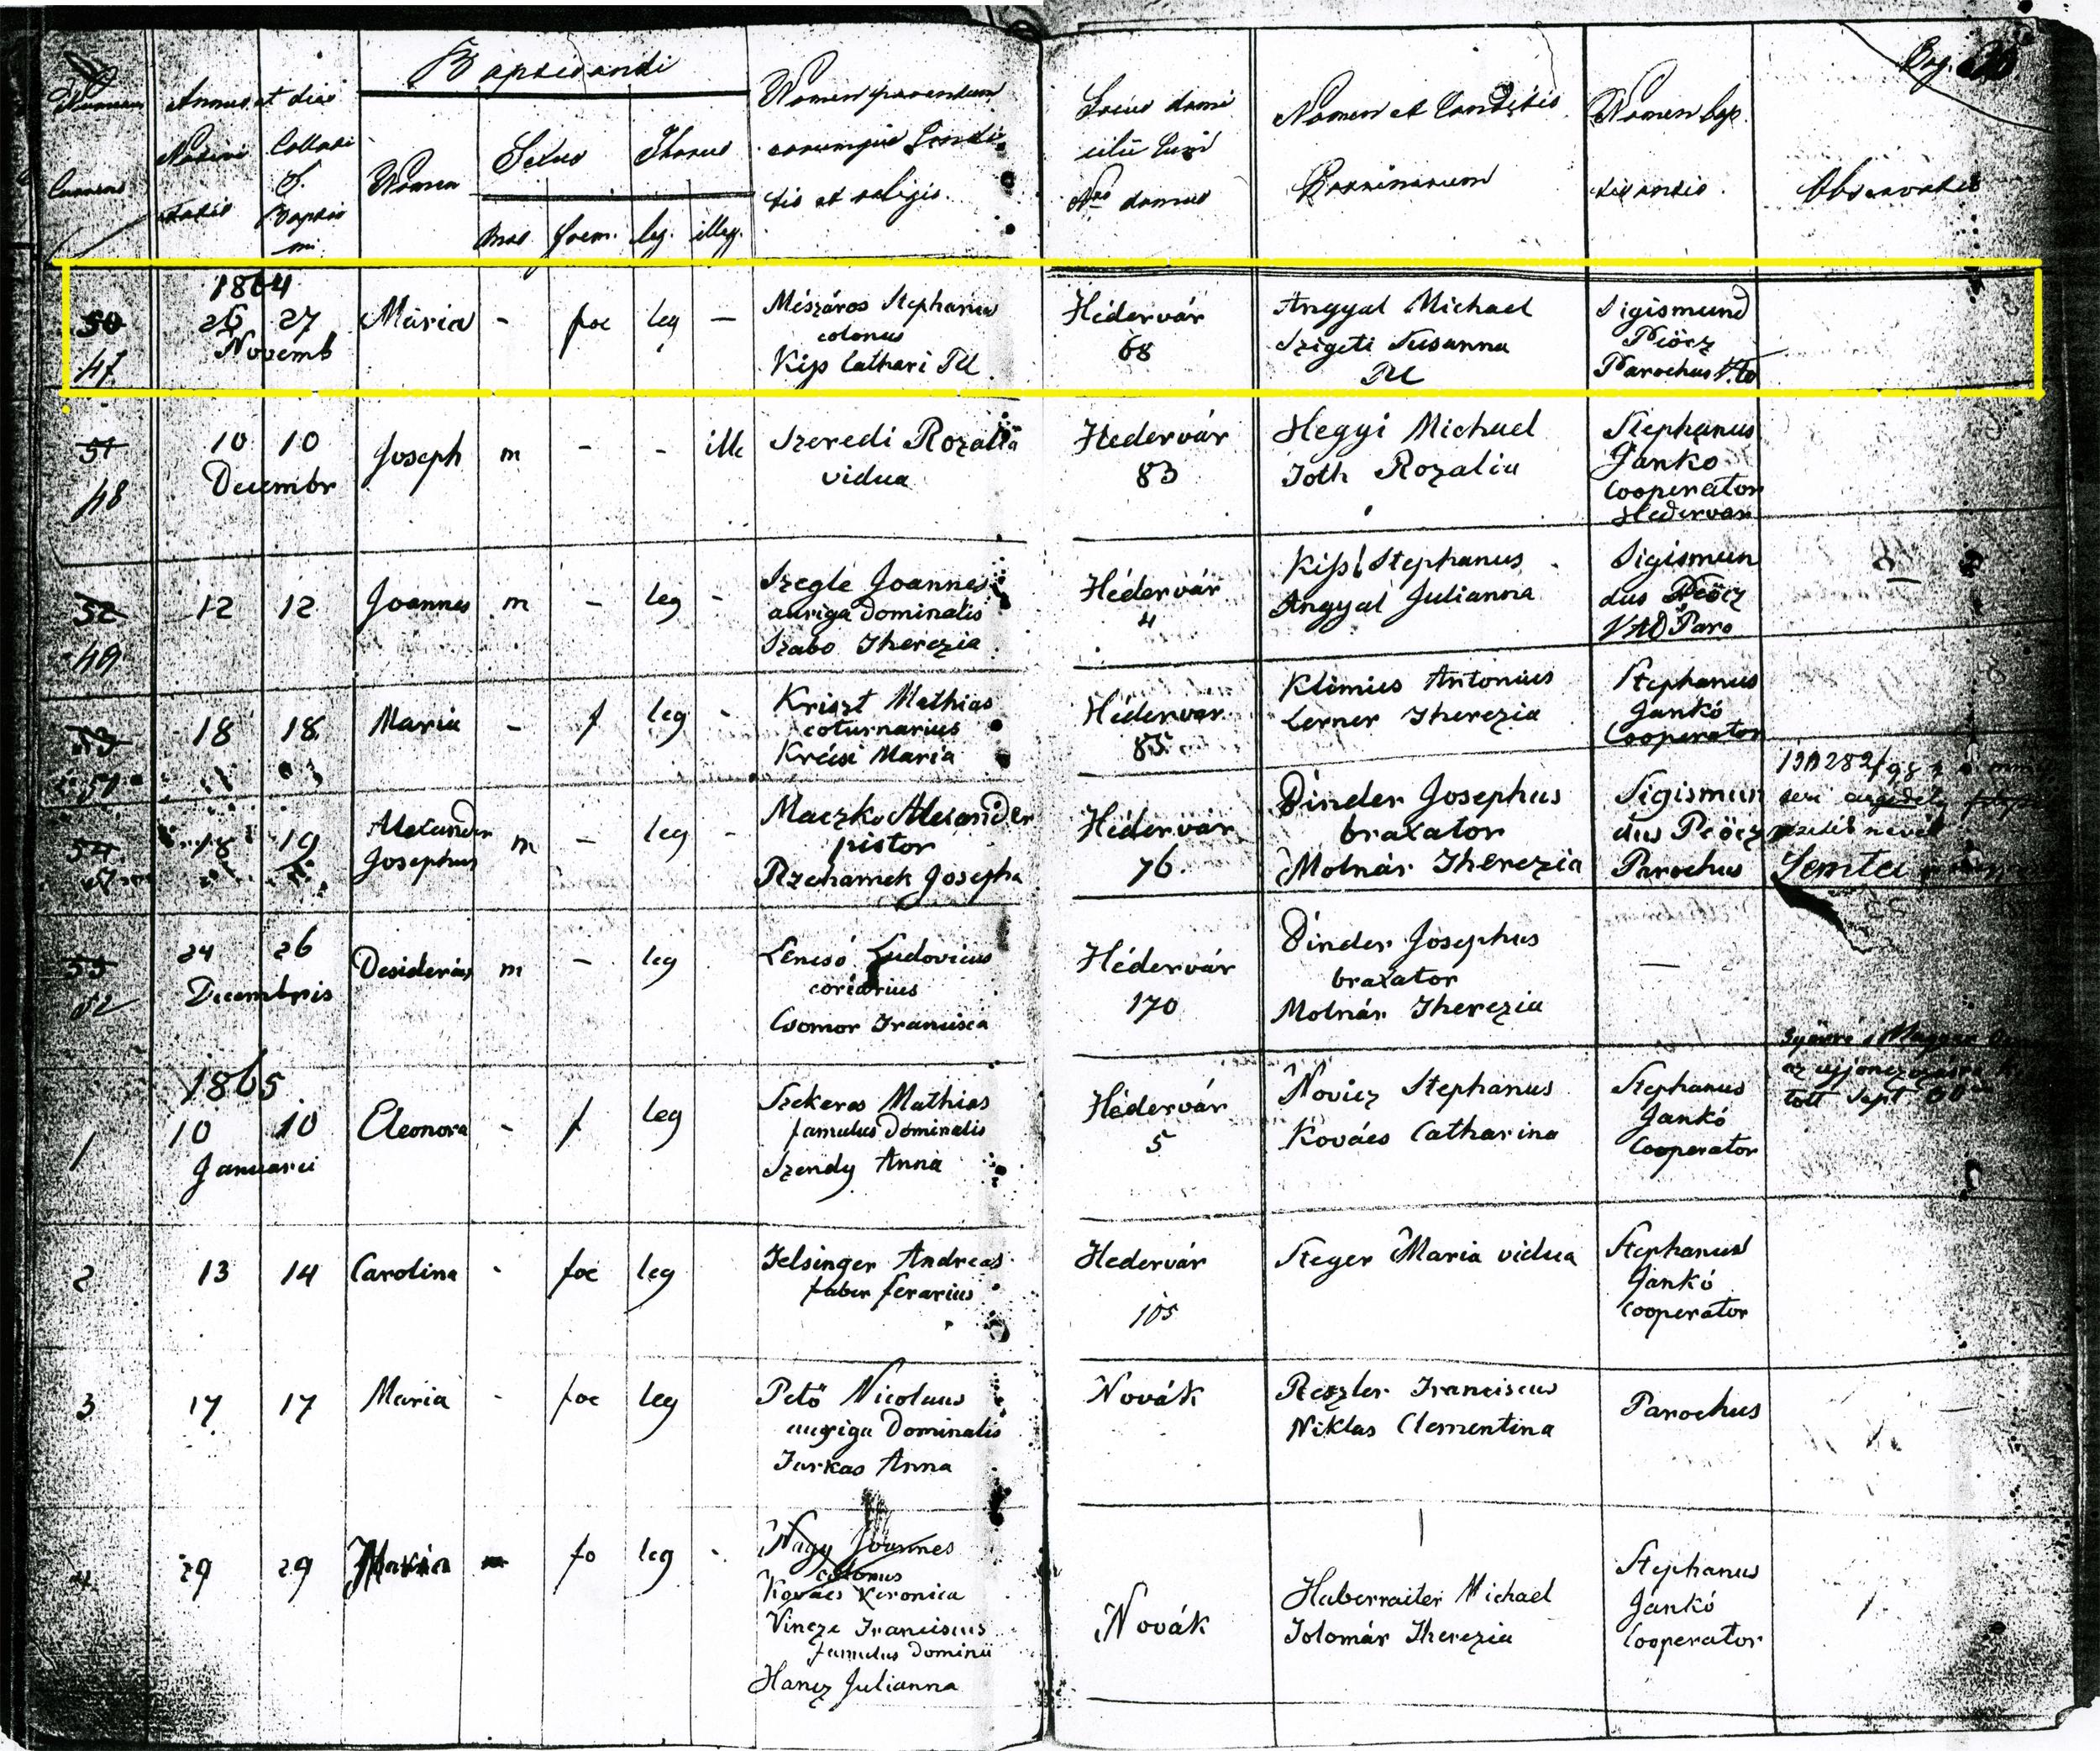 Baptisandi
Numerus currens
Annus et dies
Nativitatis
Collati S. Baptismi
Nomen
Sexus
Thorus
mas. foem. leg. illeg.
Nomen parentum
eorumque Condi
tio et religio.
Locus domi
cilii cum
Nro domus
Nomen et Conditio
Patrinorum
Nomen bap
tisantis.
Pag.
1864
50
47
26 27
Novemb
Maria - foe leg -
Mészáros Stephanus
colonus
Kiss Cathari RC
Hédervár
68
Angyal Michael
Szigeti Susanna
RC
Sigismund
Pöcz
Parochus
51
48
10 10
Decembr
Joseph m - - ille
Szeredi Rozalia
vidua
Hédervár
83
Hegyi Michael
Toth Rozalia
Stephanus
Jankó
Cooperator
Hédervár
52
49
12 12 Joannes m - leg -
Szegle Joannes
auriga Dominalis
Szabo Therezia
Hédervár
4
Kiss Stephanus
Angyal Julianna
Sigismun
dus Pöcz
53
18 18 Maria - f leg -
Kriszt Mathias
coturnarius
Krécsi Maria
Hédervár
85
Klimius Antonius
Lerner Therezia
Stephanus
Jankó
Cooperator
54
18 19
Alexander
Josephus m - leg -
Maczko Alexander
pistor
Rzehamek Josepha
Hédervár
76.
Dinder Josephus
braxator
Molnár Therezia
Sigismun
dus Pöcz
Parochus
55
52
24 26
Decembris
Desiderius m - leg
Lencsó Ludovicus
coriarius
Csomor Francisca
Hédervár
170
Dinder Josephus
braxator
Molnár Therezia
-
1865
1
10 10
Januarii
Eleonora - f leg
Szekeres Mathias
famulus Dominalis
Szendy Anna
Hédervár
5
Novicz Stephanus
Kovács Catharina
Stephanus
Jankó
Cooperator
2
13 14 Carolina - foe leg
Felsinger Andreas
faber ferarius
Hedervár
105
Steger Maria vidua
Stephanus
Jankó
Cooperator
3
17 17 Maria - foe leg
Pető Nicolaus
auriga Dominalis
Farkas Anna
Novák
Reszler Franciscus
Niklas Clementina
Parochus
4
29 29 Maria fo leg -
Nagy Joannes
colonus
Kovács Veronica
Vincze Franciscus
famulus Dominii
Hancz Julianna
Novák
Haberraiter Michael
Tolomár Therezia
Stephanus
Jankó
Cooperator